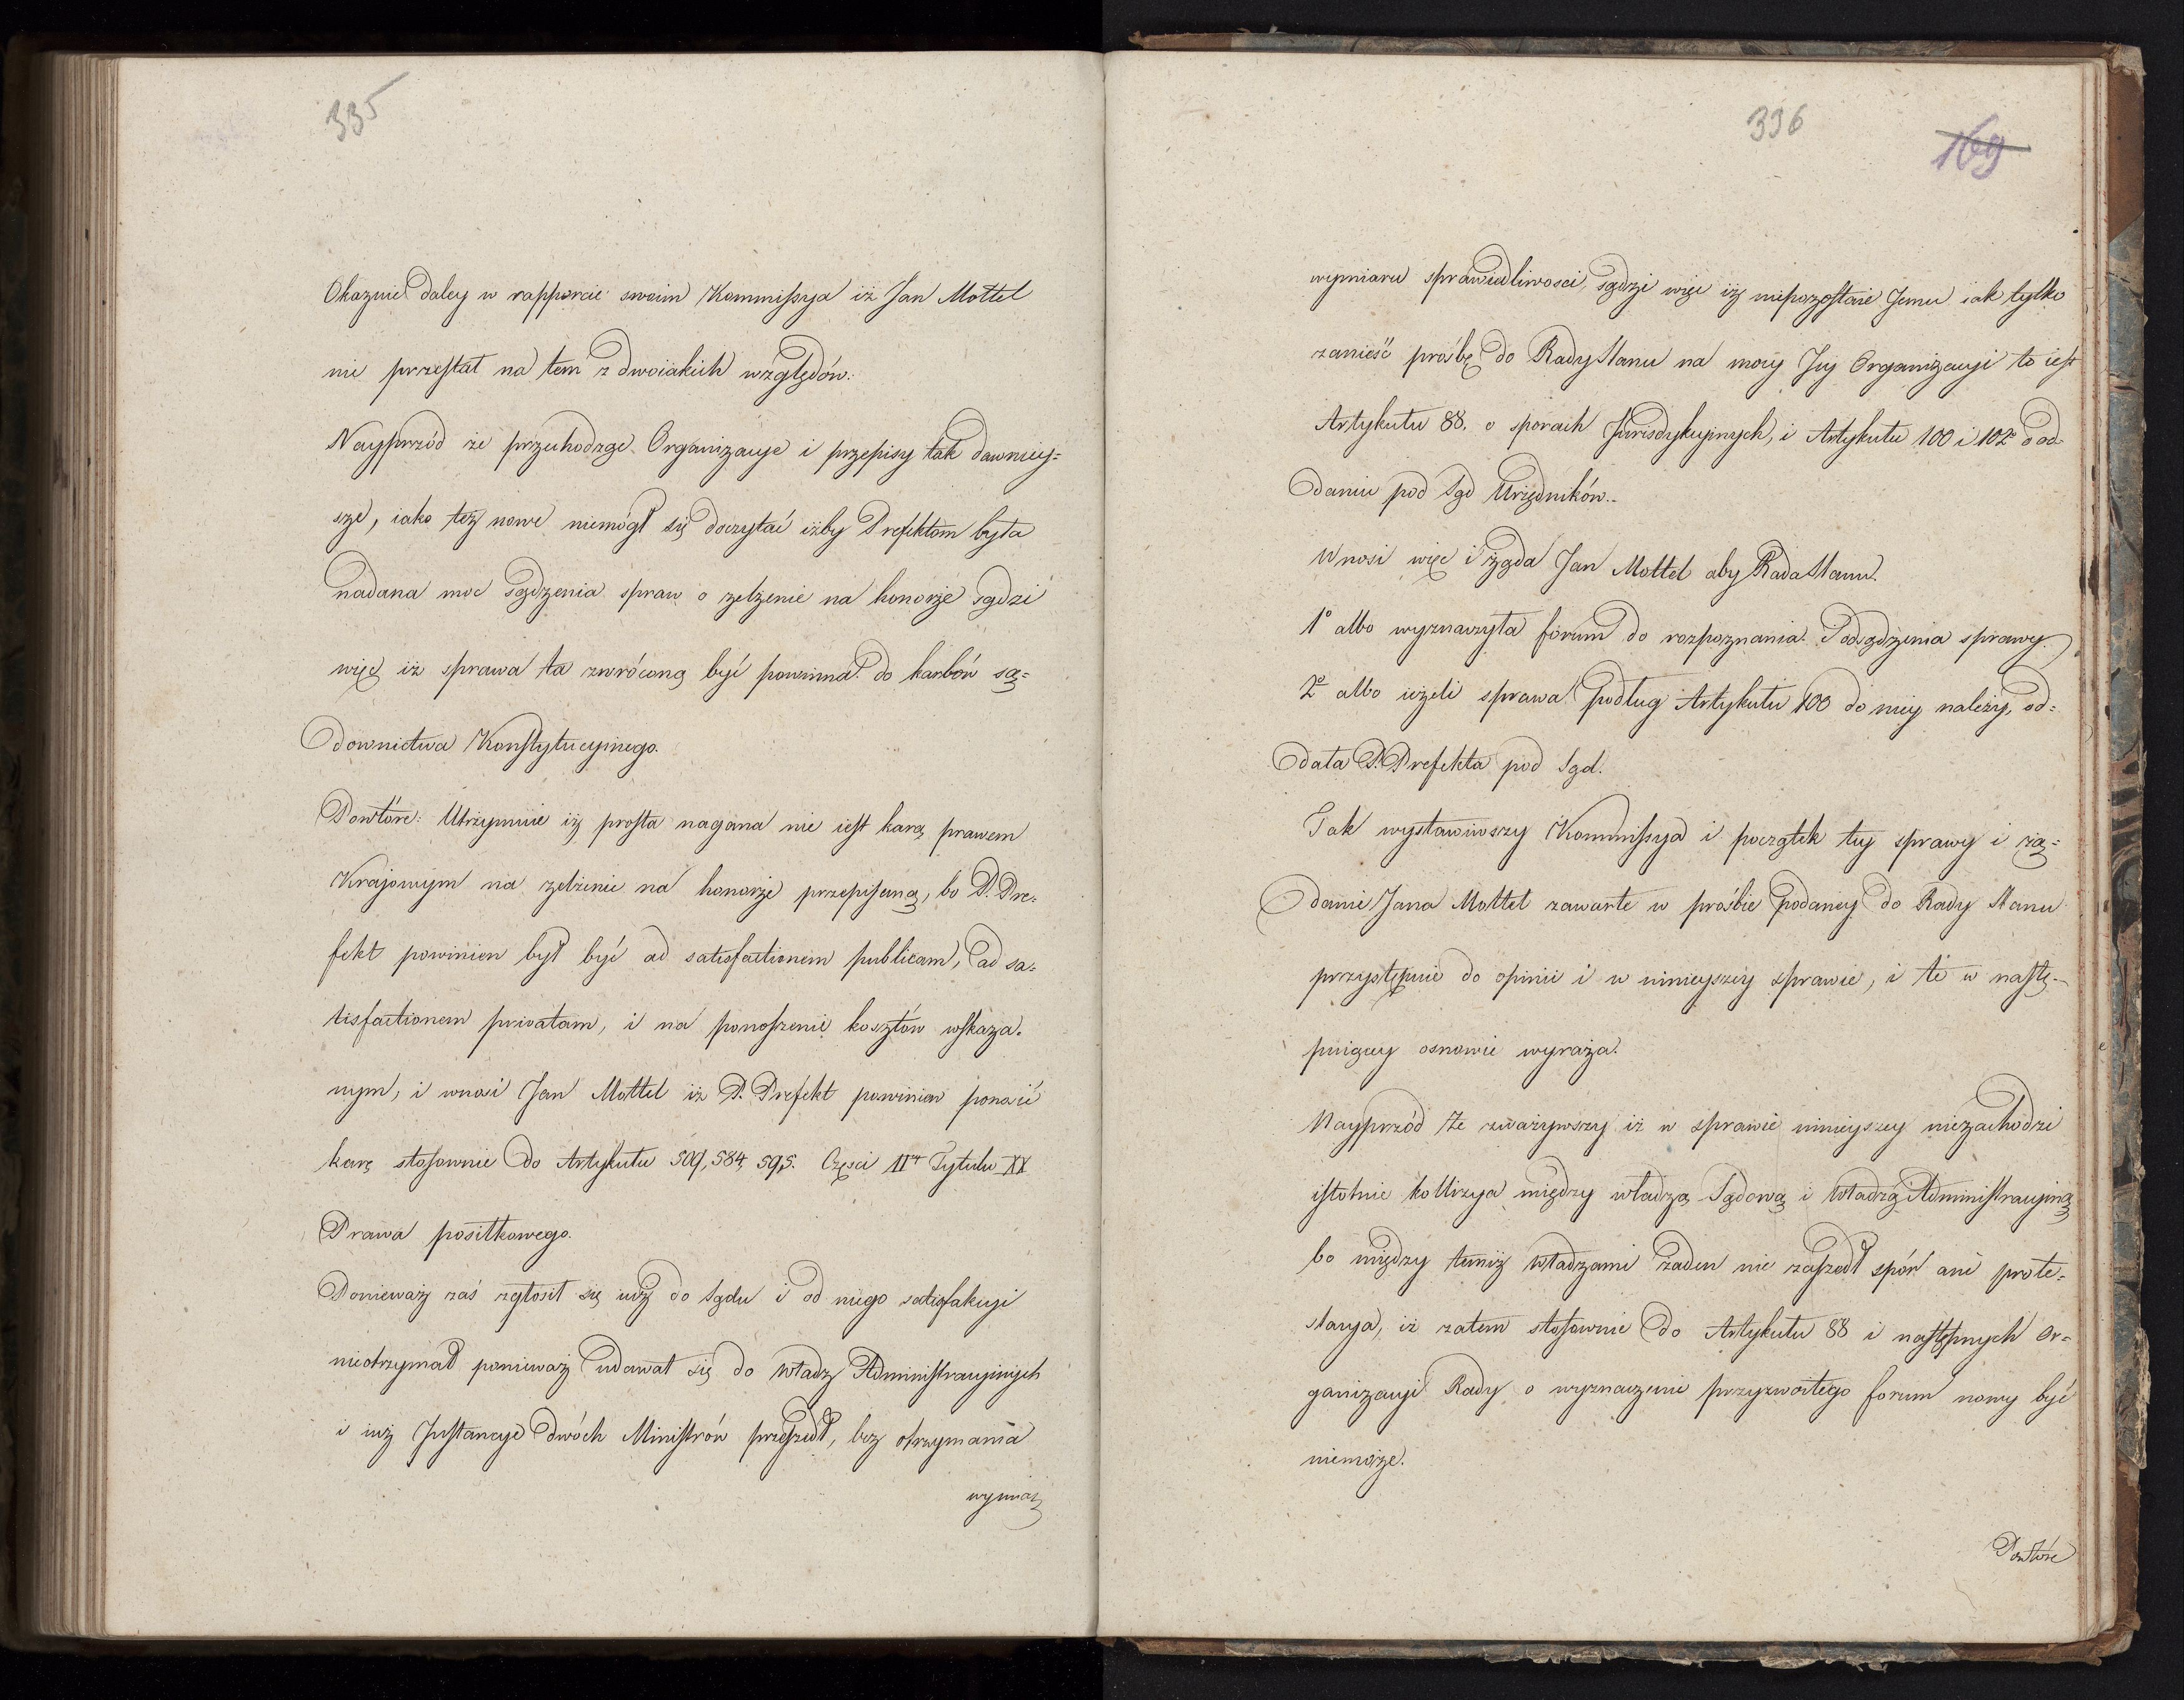 335
Okazuie daley w rapporcie swoim Kommissya iż Jan Mottel
nie przestał na tem z dwoiakich względów:
Nayprzód że przechodząc Organizacye i przepisy tak dawniey=
sze, iako też nowe niemógł się doczytać iżby Prefektom była
nadana moc sądzenia spraw o zelżenie na honorze sądzi
więc iż sprawa ta zwróconą być powinna do karbów są=
downictwa Konstytucyinego.
Powtóre: Utrzymuie iż prosta nagana nie iest karą prawem
Krajowym na zelżenie na honorze przepisaną, bo P. Pre=
fekt powinien był być ad satisfactionem publicam, ad sa=
tisfactionem privatam, i na ponoszenie kosztów wskaza=
nym, i wnosi Jan Mottel iż P. Prefekt powinien ponosić
karę stosownie do Artykułu 509, 584, 595. Częsci II Tytułu XX
Prawa posiłkowego.
Ponieważ zaś zgłosił się iuż do Sądu i od niego satisfakcyi
nieotrzymał ponieważ udawał się do Władz Administracyinych
i iuż Instancye dwóch Ministrów przeszedł, bez otrzymania
wymiaru
336
169
wymiaru sprawiedliwosci, sądzi więc iż niepozostaie Jemu iak tylko
zanieść prośbę do Rady Stanu na mocy Jey Organizacyi to iest
Artykułu 88. o sporach Jurisdykcyinych, i Artykułu 100 i 102 o od=
daniu pod Sąd Urzędników.
Wnosi więc i żąda Jan Mottel aby Rada Stanu.
1º albo wyznaczyła forum do rozpoznania i odsądzenia sprawy.
2º albo ieżeli sprawa podług Artykułu 100 do niey należy, od=
dała P. Prefekta pod Sąd.
Tak wystawiwszy Kommissya i początek tey sprawy i żą=
danie Jana Mottel zawarte w prośbie podaney do Rady Stanu
przystępuie do opinii i w ninieyszey sprawie, i te w nastę=
puiącey osnowie wyraża.
Nayprzód że zważywszy iż w sprawie ninieyszey niezachodzi
istotnie kollizya między władzą Sądową i Władzą Administracyiną
bo między temiż Władzami żaden nie zaszedł spór ani prote=
stacya, iż zatem stosownie do Artykułu 88 i następnych Or=
ganizacyi Rady o wyznaczenie przyzwoitego forum mowy być
niemoże.
Powtóre